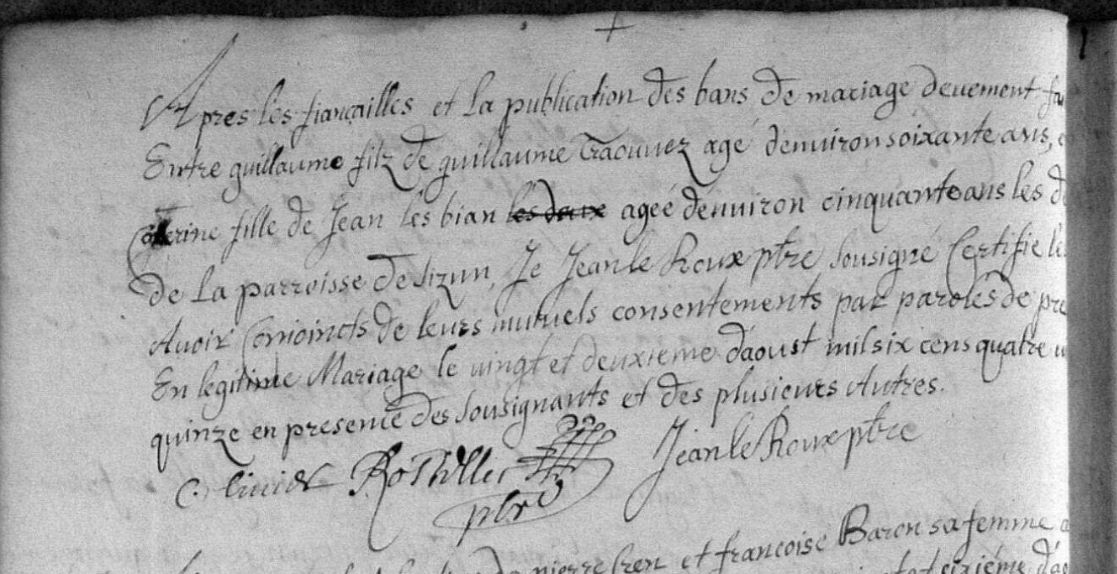 Apres les fiançailles et la publication des bans de mariage deuement
Entre guillaume filz de guillaume Traouuez agé denuiron soixante ans,
fille de Jean les bian les deux ageé denuiron cinquante ans les
de la parroisse de sizun, Je Jean le Roux ptre sousigné Certifie les
Auoir Conioincts de leurs mutuels consentements par paroles de pre
En legitime Mariage le uingt et deuxieme daoust mil six cens quatre
quinze en presence des sousignants et des plusieurs Autres.
Jean le Roux ptre
ptre
et francoise Baron sa femme